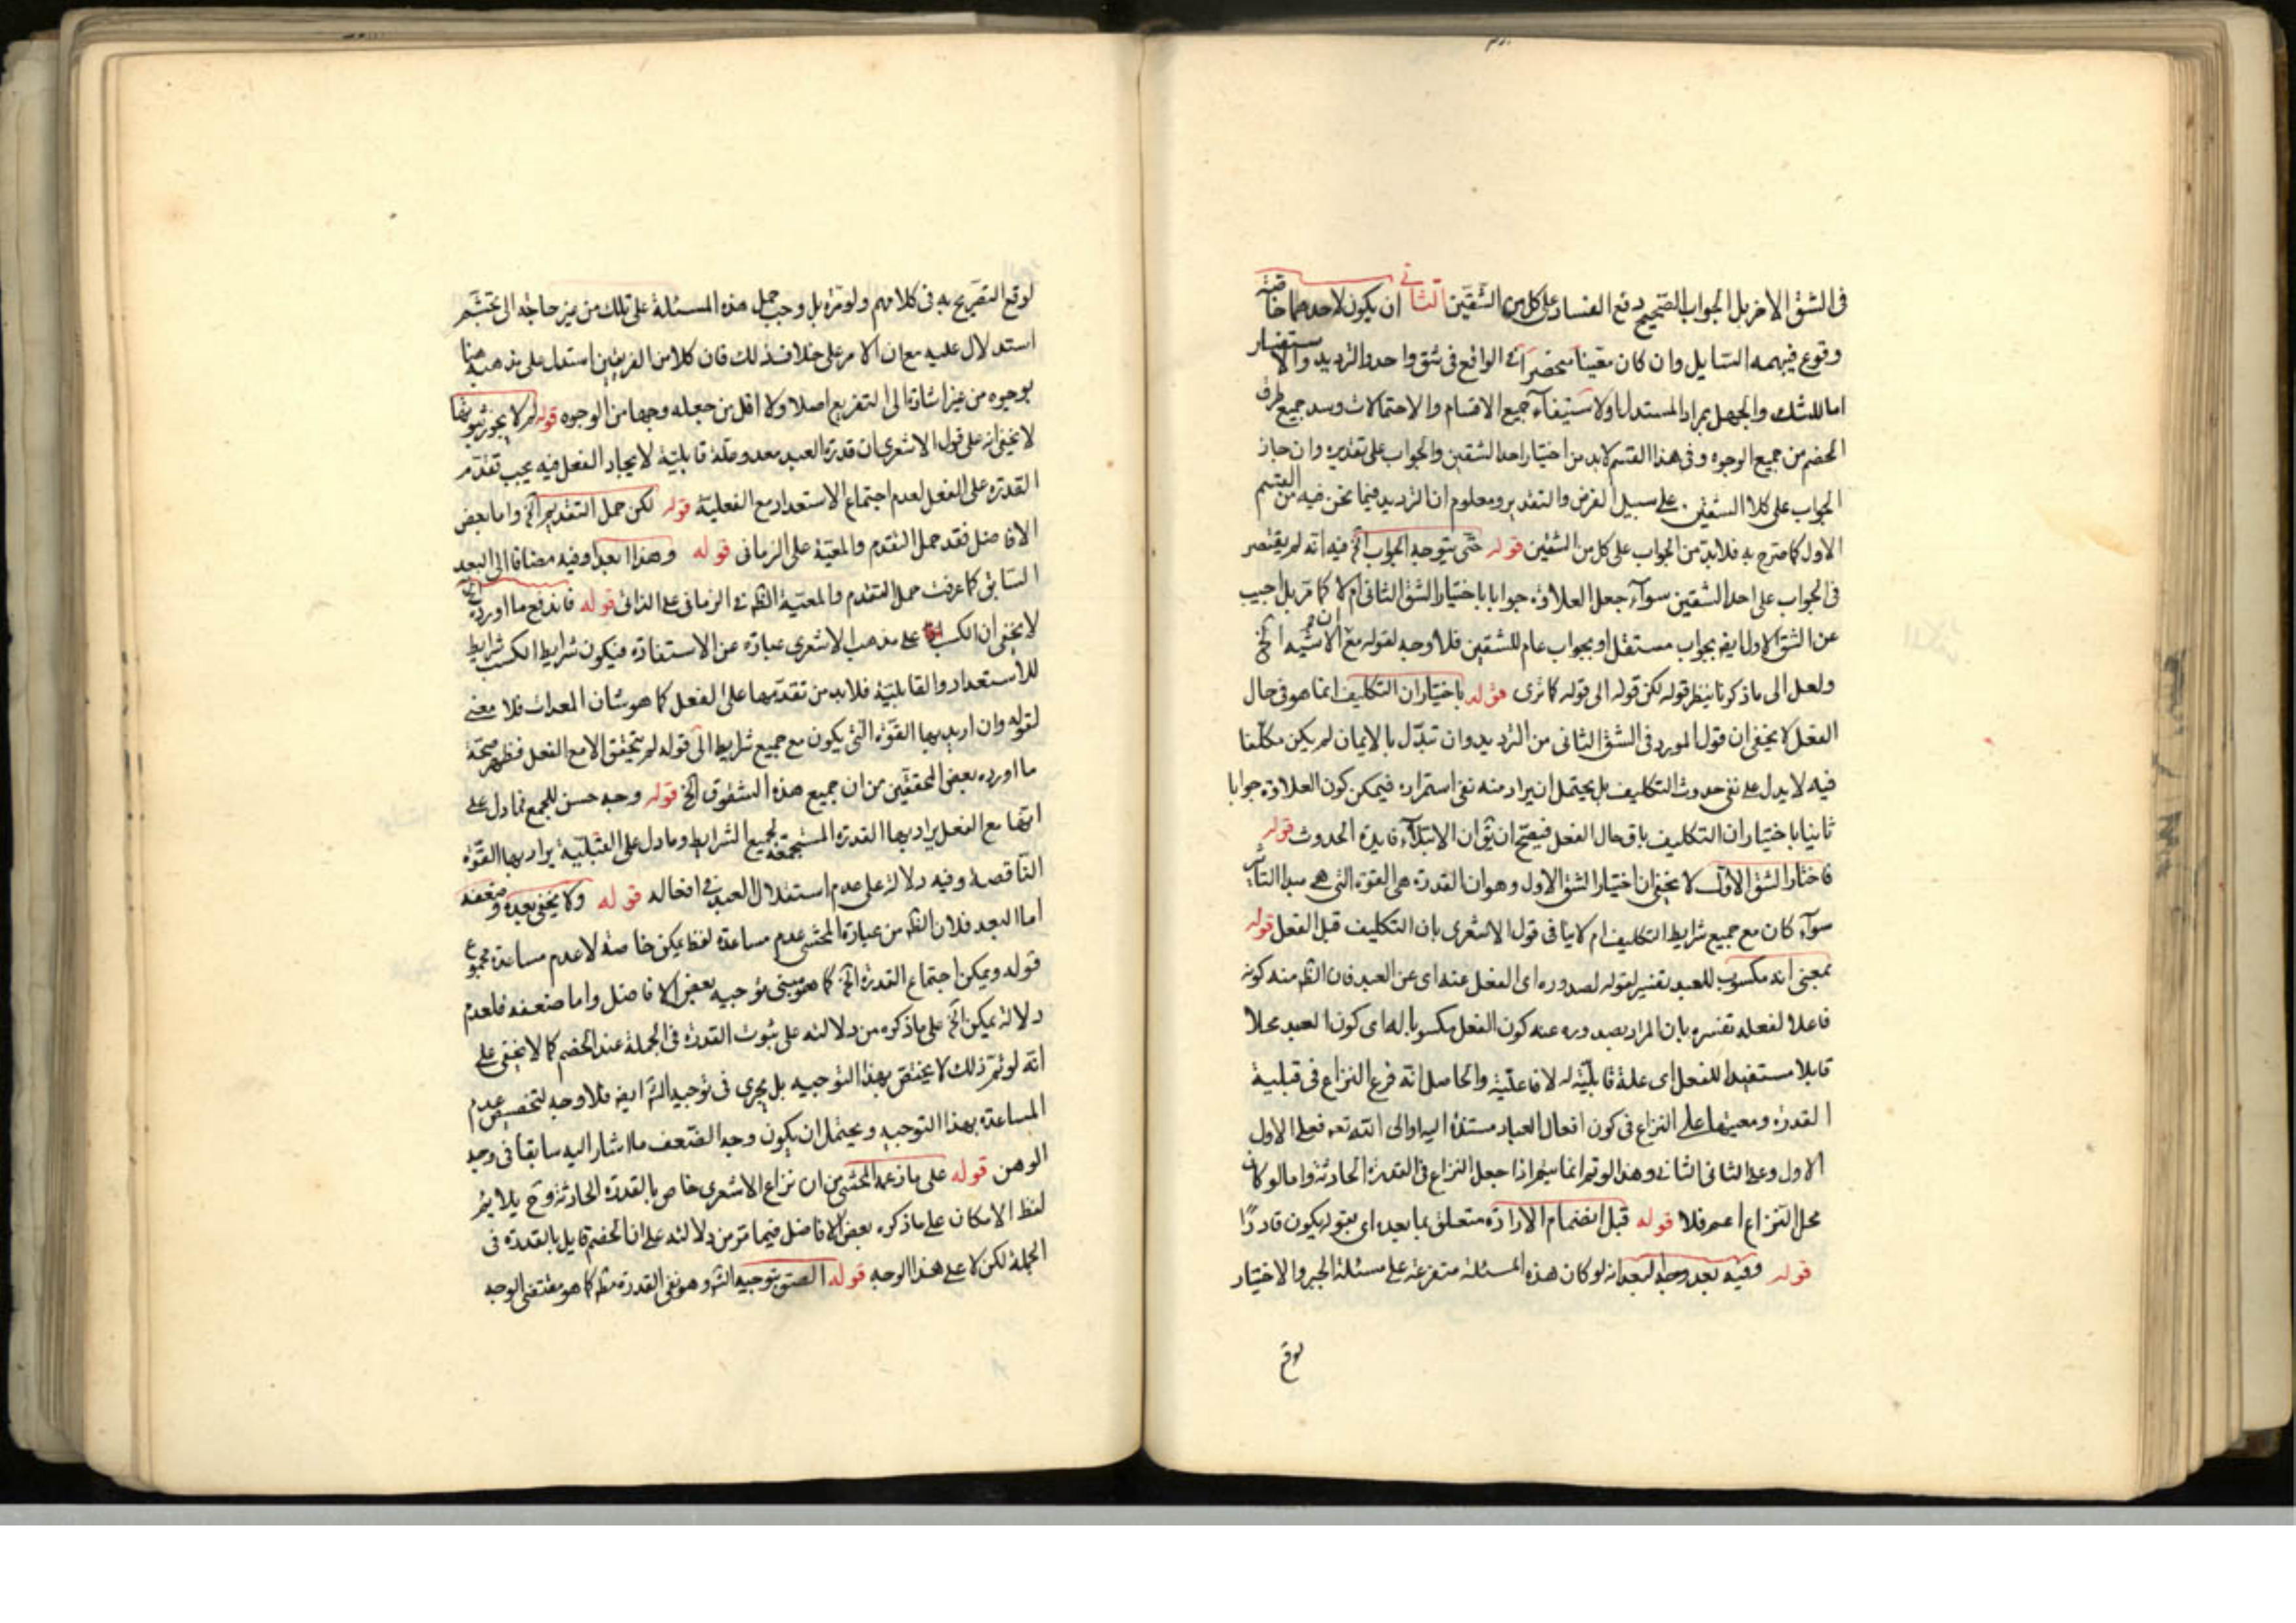 فى الشق الاخر بل الجواب الصحيح دفع الفساد على كل من الشقين الثانى ان يكون لاحدهما خاصة
وقوع فيبهمه السايل وان كان معينا منحصرا فى الواقع فى شق واحد والترديد والاستفسار
اما للشك والجهل بمراد المستدل اولاستيفاء جميع الاقسام والاحتمالات وسد جميع طرق
الخصم من جميع الوجوه وفى هذا القسم لابد من اختيار احد الشقين والجواب على تقديره وان جاز
الجواب على كلا الشقين على سبيل الفرض والتقدير ومعلوم ان الترديد فيما نحن فيه من القسم
الاول كما صرح به فلابد من الجواب على كل من الشقين قوله حتى يتوجه الجواب الخ فيه انه لم يقتصر
فى الجواب على احد الشقين سوآء جعل العلاوة جوابا باختيار الشق الثانى ام لا كما مر بل اجيب
عن الشق الاول ايضا بجواب مستقل او بجواب عام للشقين فلا وجه لقوله مع ان الاشبه الخ
ولعل الى ما ذكرنا ينظر قوله لكن قوله الى قوله كما ترى قوله باختيار ان التكليف انما هو فى حال
الفعل لا يخفى ان قول المورد فى الشق الثانى من الترديد وان تبدل بالايمان لم يكن مكلفا
فيه لا يدل على نفى حدوث التكليف بل يحتمل ان يراد منه نفى استمراره فيمكن كون العلاوة جوابا
ثانيا باختيار ان التكليف باق حال الفعل فيصح ان يق ان الابتلآء فايدة الحدوث قوله
فاختار الشق الاول لا يخفى ان اختيار الشق الاول وهو ان القدرة هى القوة التى هى مبدا التاثير
سوآء كان مع جميع شرايط التكليف ام لا ينافى قول الاشعرى بان التكليف قبل الفعل قوله
بمعنى انه مكسوب للعبد تفسير لقوله لصدوره اى الفعل عنه اى عن العبد فان الظ منه كونه
فاعلا لفعله تفسره بان المراد بصدوره عنه كون الفعل مكسوبا له اى كون العبد محلا
قابلا مستفيدا للفعل اى علة قابلية له لا فاعلية والحاصل انه فرع النزاع فى قبلية
القدرة ومعيتها على النزاع فى كون افعال العباد مستندة اليه او الى الله تعه فعلى الاول
الاول وعلى الثانى الثانى وهذا لو تم انما يتم اذا جعل النزاع فى القدرة الحادثة واما لو كان
محل النزاع اعم فلا قوله قبل انضمام الارادة متعلق بما بعده اى بقوله يكون قادرًا
قوله وفيه بعد وجه البعد انه لو كان هذه المسئلة متفرعة على مسئلة الجبر والاختيار
لوقع
لوقع التصريح به فى كلامهم ولو مرة بل وجب حمل هذه المسئلة على تلك من غير حاجة الى تجشم
استدلال عليه مع ان الامر على خلاف ذلك فان كلا من الفريقين استدل على مذهبه هنا
بوجوه من غير اشارة الى التفريع اصلا ولا اقل من جعله وجها من الوجوه قوله لم لا يجوز ثبوتها
لا يخفى انه على قول الاشعرى بان قدرة العبد معد وعلة قابلية لايجاد الفعل فيه يجب تقدم
القدرة على الفعل لعدم اجتماع الاستعداد مع الفعلية قوله لكن حمل التقديم الخ واما بعض
الافاضل فقد حمل التقدم والمعية على الزمانى قوله وهذا ابعد وفيه مضافا الى البعد
السابق كما عرفت حمل التقدم والمعية الظ فى الزمانى على الذاتى قوله فاندفع ما اورده الخ
لا يخفى ان الكسب على مذهب الاشعرى عبارة عن الاستفادة فيكون شرايط الكسب شرايط
للاستعداد والقابلية فلابد من تقدمها على الفعل كما هو شان المعدات فلا معنى
لقوله وان اريد بها القوة التى يكون مع جميع شرايط الى قوله لم يتحقق الا مع الفعل فظهر صحة
ما اورده بعض المحققين من ان جميع هذه الشقوق الخ قوله وجه حسن للجمع فما دل على
انها مع الفعل يراد بها القدرة المستجمعة لجميع الشرايط وما دل على القبلية يراد بها القوة
الناقصة وفيه دلالة على عدم استقلال العبد فى افعاله قوله ولا يخفى بعده وضعفه
اما البعد فلان الظ من عبارة المحشى عدم مساعدة لفظ يمكن خاصة لا عدم مساعدة مجموع
قوله ويمكن اجتماع القدرة الخ كما هو مبنى توجيه بعض الافاضل واما ضعفه فلعدم
دلالة يمكن الخ على ما ذكره من دلالته على ثبوت القدرة فى الجملة عند الخصم كما لا يخفى على
انه لو تم ذلك لا يختص بهذا التوجيه بل يجرى فى توجيه الش ايضا فلا وجه لتخصيص عدم
المساعدة بهذا التوجيه ويحتمل ان يكون وجه الضعف ما اشار اليه سابقا فى وجه
الوهن قوله على ما زعمه المحشى من ان نزاع الاشعرى خاص بالقدرة الحادثة وح يلايم
لفظ الامكان على ما ذكره بعض الافاضل فيما مر من دلالته على ان الخصم قايل بالقدرة فى
الجملة لكن لا على هذا الوجه قوله الصق بتوجيه الش وهو نفى القدرة مط كما هو مقتضى الوجه